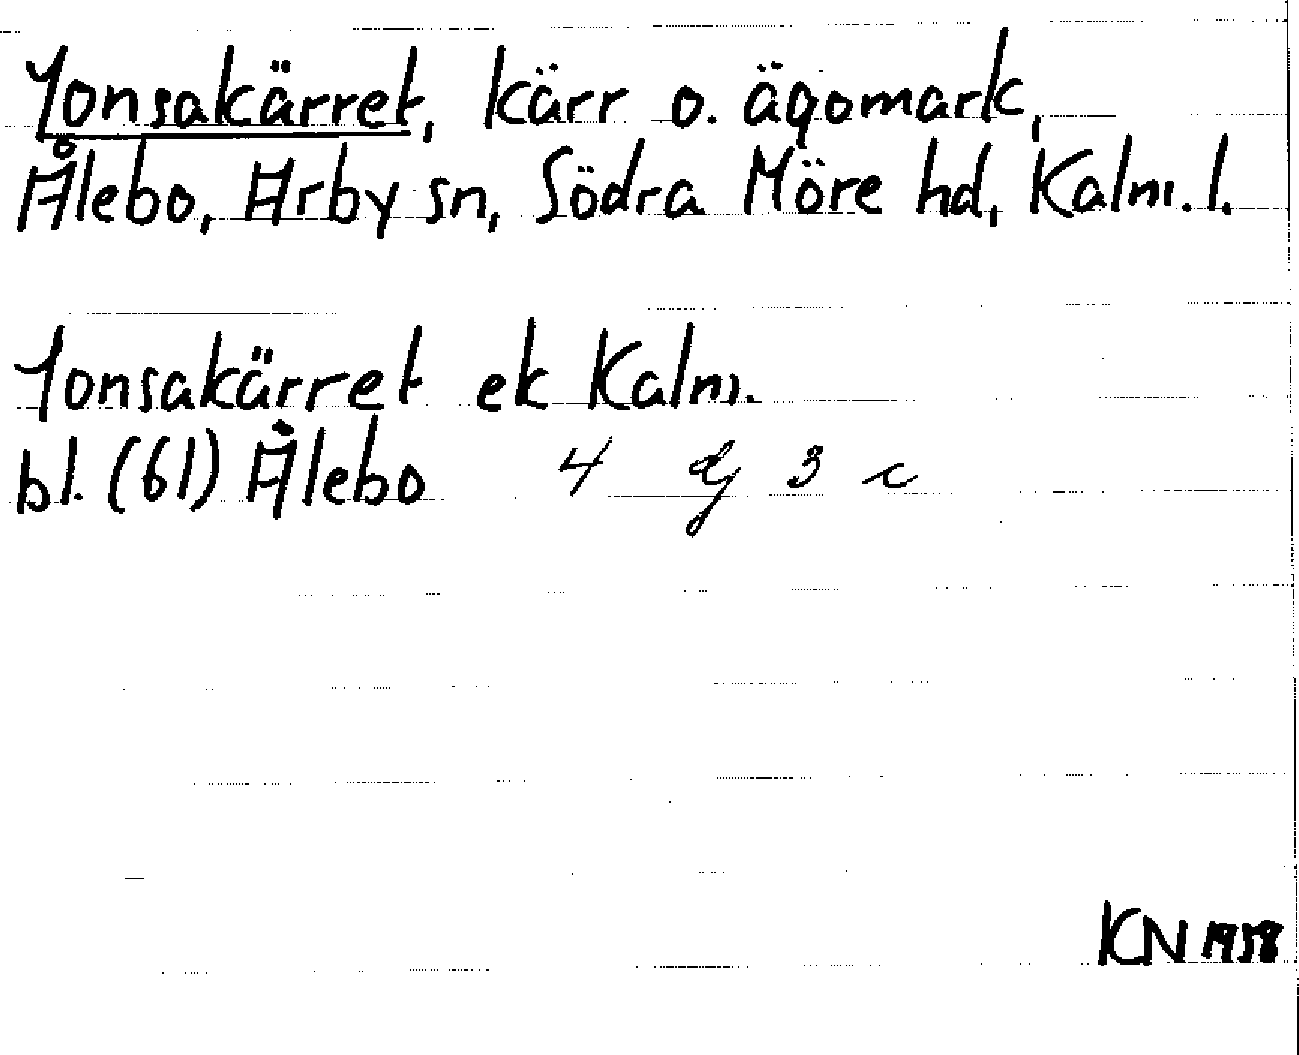 Jonsakärret, kärr o. ägomark,
Ålebo, Arby sn, Södra Möre hd, Kalm. l.
Jonsakärret ek Kalm.
bl. (61) Ålebo 4 g 3 c
KN 1958